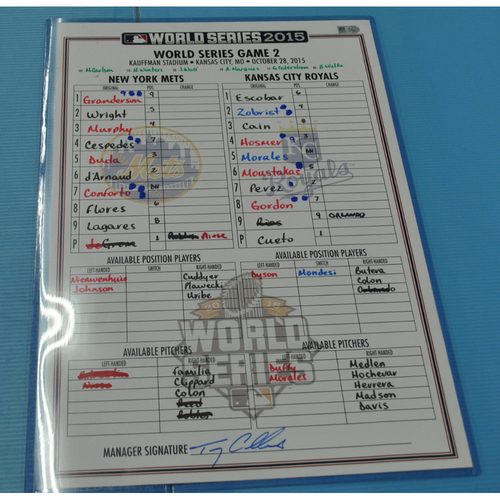 WORLD SERIES 2015
WORLD SERIES GAME 2
KAUFFMAN STADIUM • KANSAS CITY, MO • OCTOBER 28, 2015
M. Carlson M. Winters J. Wolf A. Marquez G. Cederstrom B. Welke
NEW YORK METS
ORIGINAL POS. CHANGE
1 Granderson 9
2 Wright 5
3 Murphy 4
4 Cespedes 7
5 Duda 3
6 d'Arnaud 2
7 Conforto DH
8 Flores 6
9 Lagares 8
P deGrom 1 Robles Niese
KANSAS CITY ROYALS
ORIGINAL POS. CHANGE
1 Escobar 6
2 Zobrist 4
3 Cain 8
4 Hosmer 3
5 Morales DH
6 Moustakas 5
7 Perez 2
8 Gordon 7
9 Rios 9 ORLANDO
P Cueto 1
Mets
Royals
AVAILABLE POSITION PLAYERS
LEFT-HANDED SWITCH RIGHT-HANDED
Nieuwenhuis Cuddyer
Johnson Plawecki
Uribe
AVAILABLE POSITION PLAYERS
LEFT-HANDED SWITCH RIGHT-HANDED
Dyson Mondesi Butera
Colon
Orlando
2015
WORLD SERIES
AVAILABLE PITCHERS
LEFT-HANDED RIGHT-HANDED
Niese Familia
Clippard
Colon
Reed
Robles
AVAILABLE PITCHERS
LEFT-HANDED RIGHT-HANDED
Duffy Medlen
Morales Hochevar
Herrera
Madson
Davis
MANAGER SIGNATURE